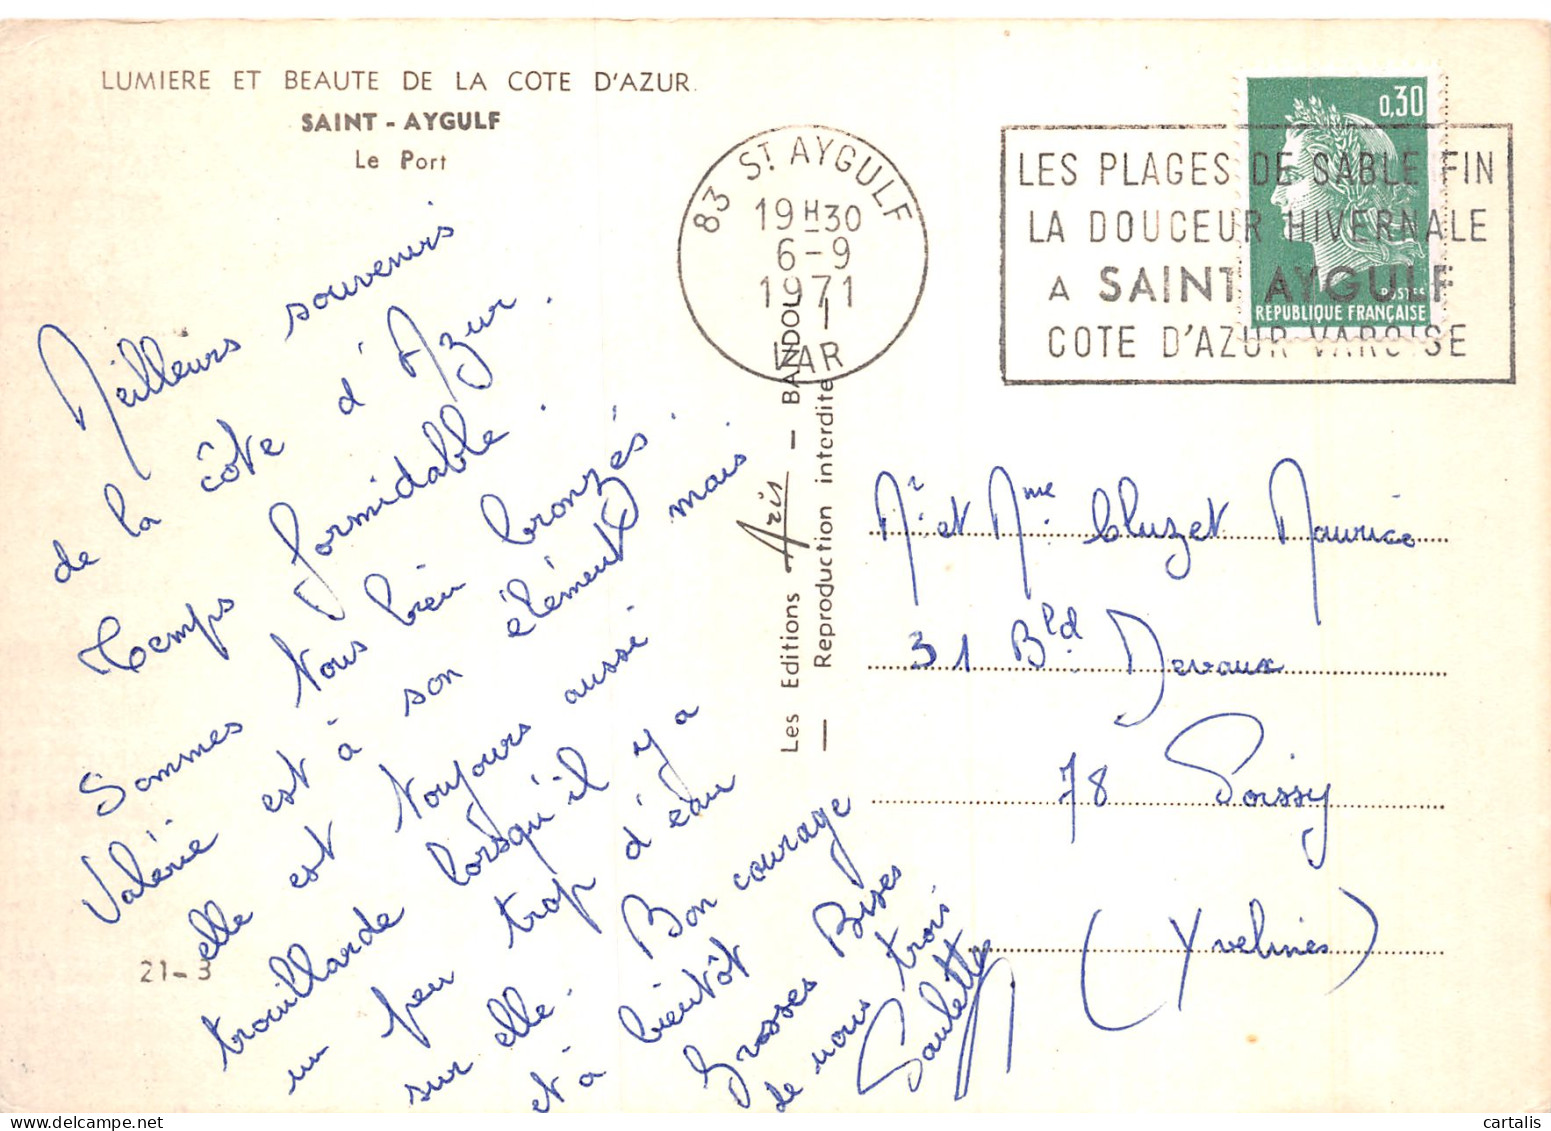 LUMIERE ET BEAUTE DE LA COTE D'AZUR.
SAINT - AYGULF
Le Port
83 ST AYGULF
19H30
6-9
1971
VAR
LES PLAGES DE SABLE FIN
LA DOUCEUR HIVERNALE
A SAINT AYGULF
COTE D'AZUR VAROISE
0,30
POSTES
REPUBLIQUE FRANÇAISE
Meilleurs souvenirs
de la côte d'Azur.
Temps formidable.
Sommes tous bien bronzés.
Valérie est à son élément mais
elle est toujours aussi
trouillarde lorsqu'il y a
un peu trop d'eau
sur elle. Bon courage
et à bientôt
Grosses Bises
de nous trois
Paulette
21-3
Les Editions Aris - BANDOL
Reproduction interdite
Mr. et Mme. Cluzet Maurice
31 Bld Devaux
78 Poissy
(Yvelines)
© cartalis
www.delcampe.net